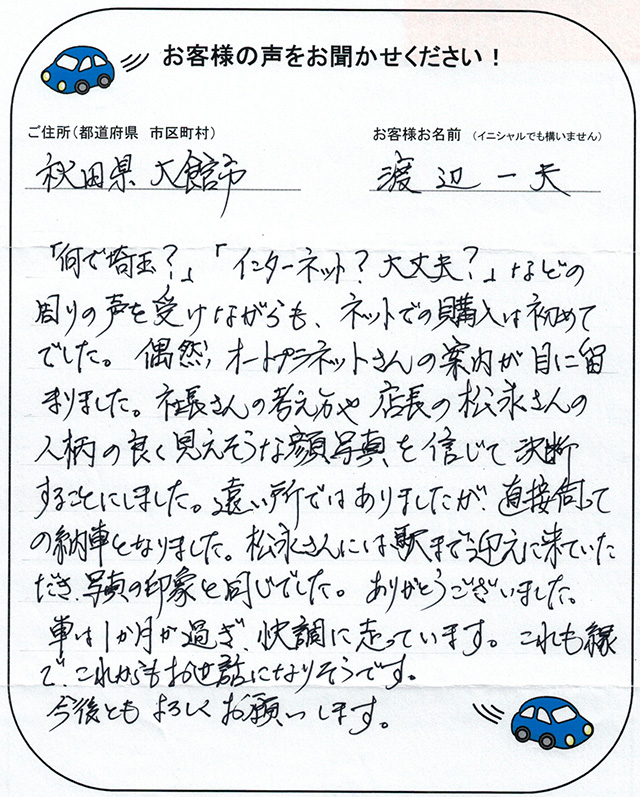 お客様の声をお聞かせください！
ご住所（都道府県 市区町村）
お客様お名前（イニシャルでも構いません）
秋田県 大館市
渡辺一夫
「何で埼玉？」「インターネット？大丈夫？」などの
周りの声を受けながらも、ネットでの購入は初めて
でした。偶然、オートプラネットさんの案内が目に留
まりました。社長さんの考え方や店長の松永さんの
人柄の良く見えそうな顔写真を信じて決断
することにしました。遠い所ではありましたが、直接伺って
の納車となりました。松永さんには駅まで迎えに来ていた
だき、写真の印象と同じでした。ありがとうございました。
車は1か月が過ぎ、快調に走っています。これも縁
で、これからもお世話になりそうです。
今後ともよろしくお願いします。